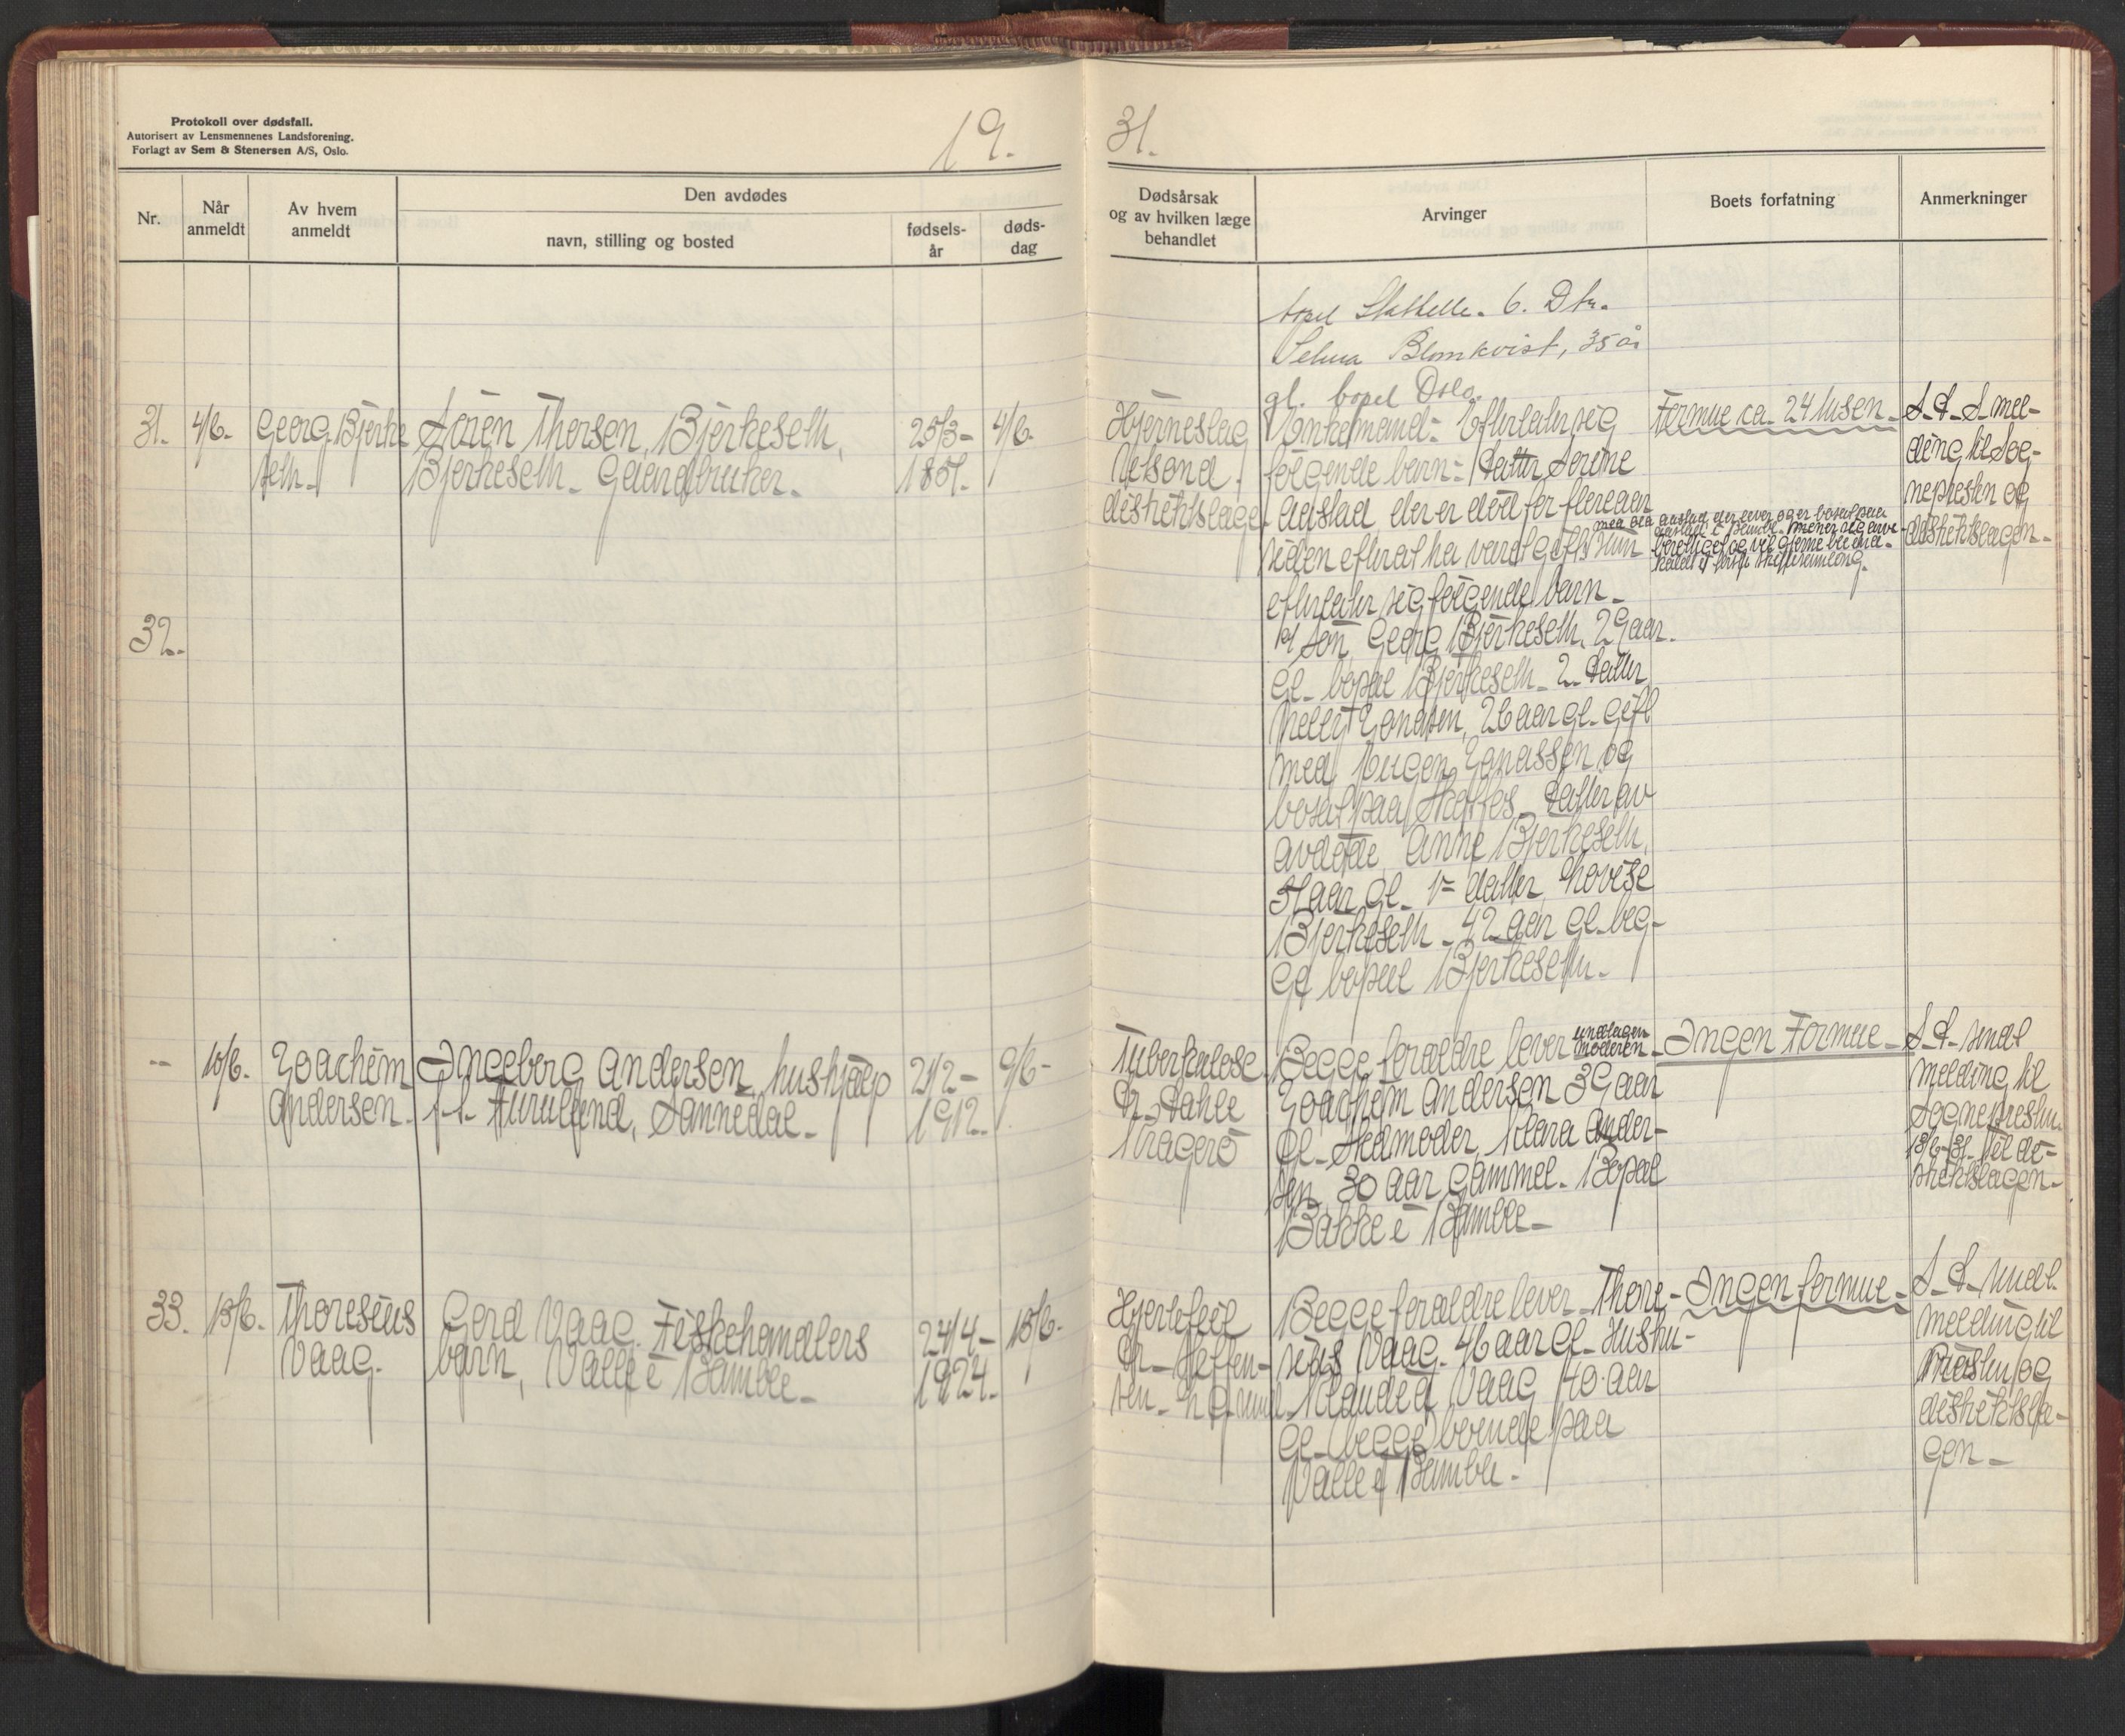 Protokoll over dødsfall.
Autorisert av Lensmennenes Landsforening.
Forlagt av Sem & Stenersen A/S, Oslo.
19.
31.
Nr.
Når anmeldt
Av hvem anmeldt
Den avdødes
navn, stilling og bosted
fødsels-
år
døds-
dag
Dødsårsak
og av hvilken læge
behandlet
Arvinger
Boets forfatning
Anmerkninger
bopel Stathelle. 6. Dtr.
Selma Blomkvist, 35 år
gl. bopel Oslo.
31.
4/6.
Georg Bjerke
seth.
Sören Thorsen, Bjerkeseth,
Bjerkeseth. Gaardbruker.
25/3-
1851.
4/6.
Hjerneslag
distriktslæge.
Enkemand. Efterlater sig
følgende barn: Datter Serine
Aastad der er död for flere aar
siden efter at ha vært gift
med Ola Aastad, der lever og er bosat paa
Hun
efterlater sig følgende barn.
1/ sön Georg Bjerkeseth, 29 aar.
gl. bopæl Bjerkeseth. 2. Datter
26 aar gl. gift
med
bosat paa
Datter av
avdøde Anne Bjerkeseth,
aar gl. datter Lovise
Bjerkeseth. 42 aar gl. beg-
ge bopæl Bjerkeseth.
Formue ca. 24 tusen.
S. d. S mel-
ding til Sog-
nepresten og
distriktslægen.
32.
--
10/6.
Joachim
Andersen.
Ingeborg Andersen, hushjælp
p.t. Furulund, Sannedal.
21/2-
1912.
9/6-
Tuberkulose
Dr. Dahle
Kragerö
Begge foræld​re lever undtagen
moderen.
Joachim Andersen 39 aar
gl. Stedmoder Klara Ander-
sen 30 aar gammel. Bopæl
Bakke i Bamble.
Ingen Formue.
S. d. sendt
melding til
Sognepresten.
13/6-31. Til di-
striktslægen.
33.
15/6.
Thoresius
Vaag.
Gerd Vaag. Fiskehandlers
barn, Valle i Bamble.
24/4-
1924.
15/6.
Hjertefeil
Dr. Heffen-
Begge forældre lever. Thore-
sius Vaag. 46 aar gl. Hustru-
Vaag 40. aar
gl. begge boende paa
Valle i Bamble.
Ingen formue.
S. d. sendt.
melding til
Presten og
distriktslæ-
gen.